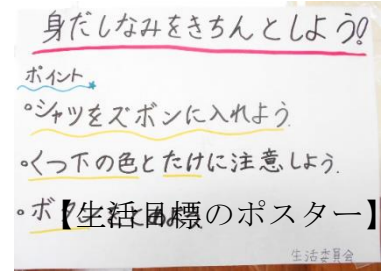 身だしなみをきちんとしよう!
ポイント
・シャツをズボンに入れよう.
・くつ下の色とたけに注意しよう.
・ボ
【生活目標のポスター】
生活委員会